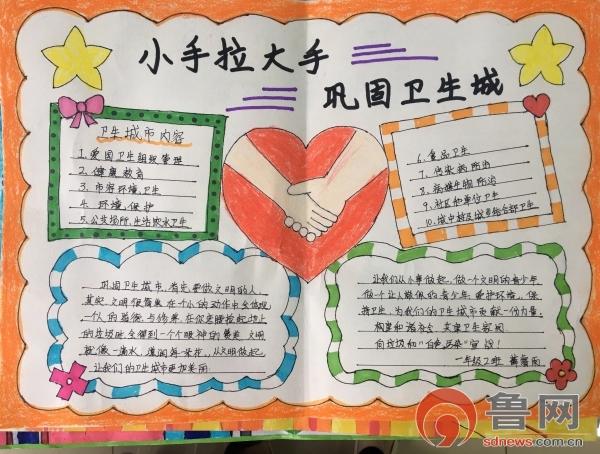 小手拉大手
巩固卫生城
卫生城市内容
1. 爱国卫生组织管理
2. 健康教育
3. 市容环境卫生
4. 环境保护
5. 公共场所、生活饮水卫生
6. 食品卫生
7. 传染病防治
8. 病媒生物防治
9. 社区和单位卫生
10. 城中村及城乡结合部卫生
巩固卫生城市，首先要做文明的人，
其实，文明很简单，在个小的动作中会体现
一个人的道德与修养，在你弯腰捡起地上
的垃圾时，会得到一个个眼神的赞美，文明
就像一滴水，
从文明做起，
让我们的卫生城市更加美丽
让我们从小事做起，做一个文明的青少年
做个让人敬佩的青少年，爱护环境，保
持卫生，为我们的卫生城市贡献一份力量，
构建和谐社会，共享卫生家园
向垃圾和“白色污染”宣战！
一年级2班
鲁网
sdnews.com.cn